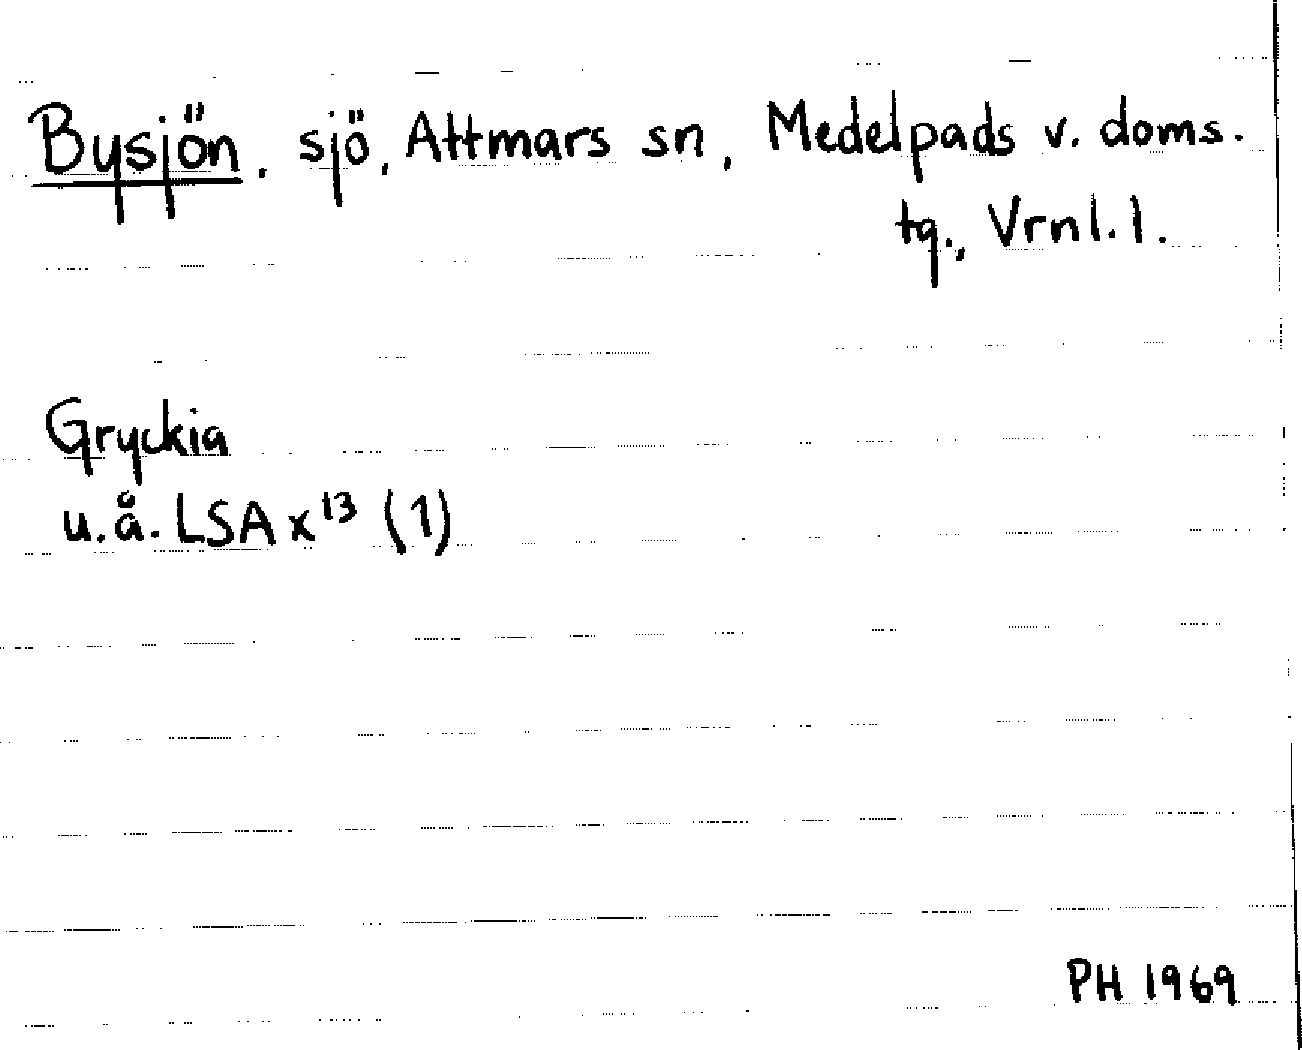 Bysjön, sjö, Attmars sn, Medelpads v. doms.
tg., Vrnl. l.
Gryckia
u.å. LSA x¹³ (1)
PH 1969